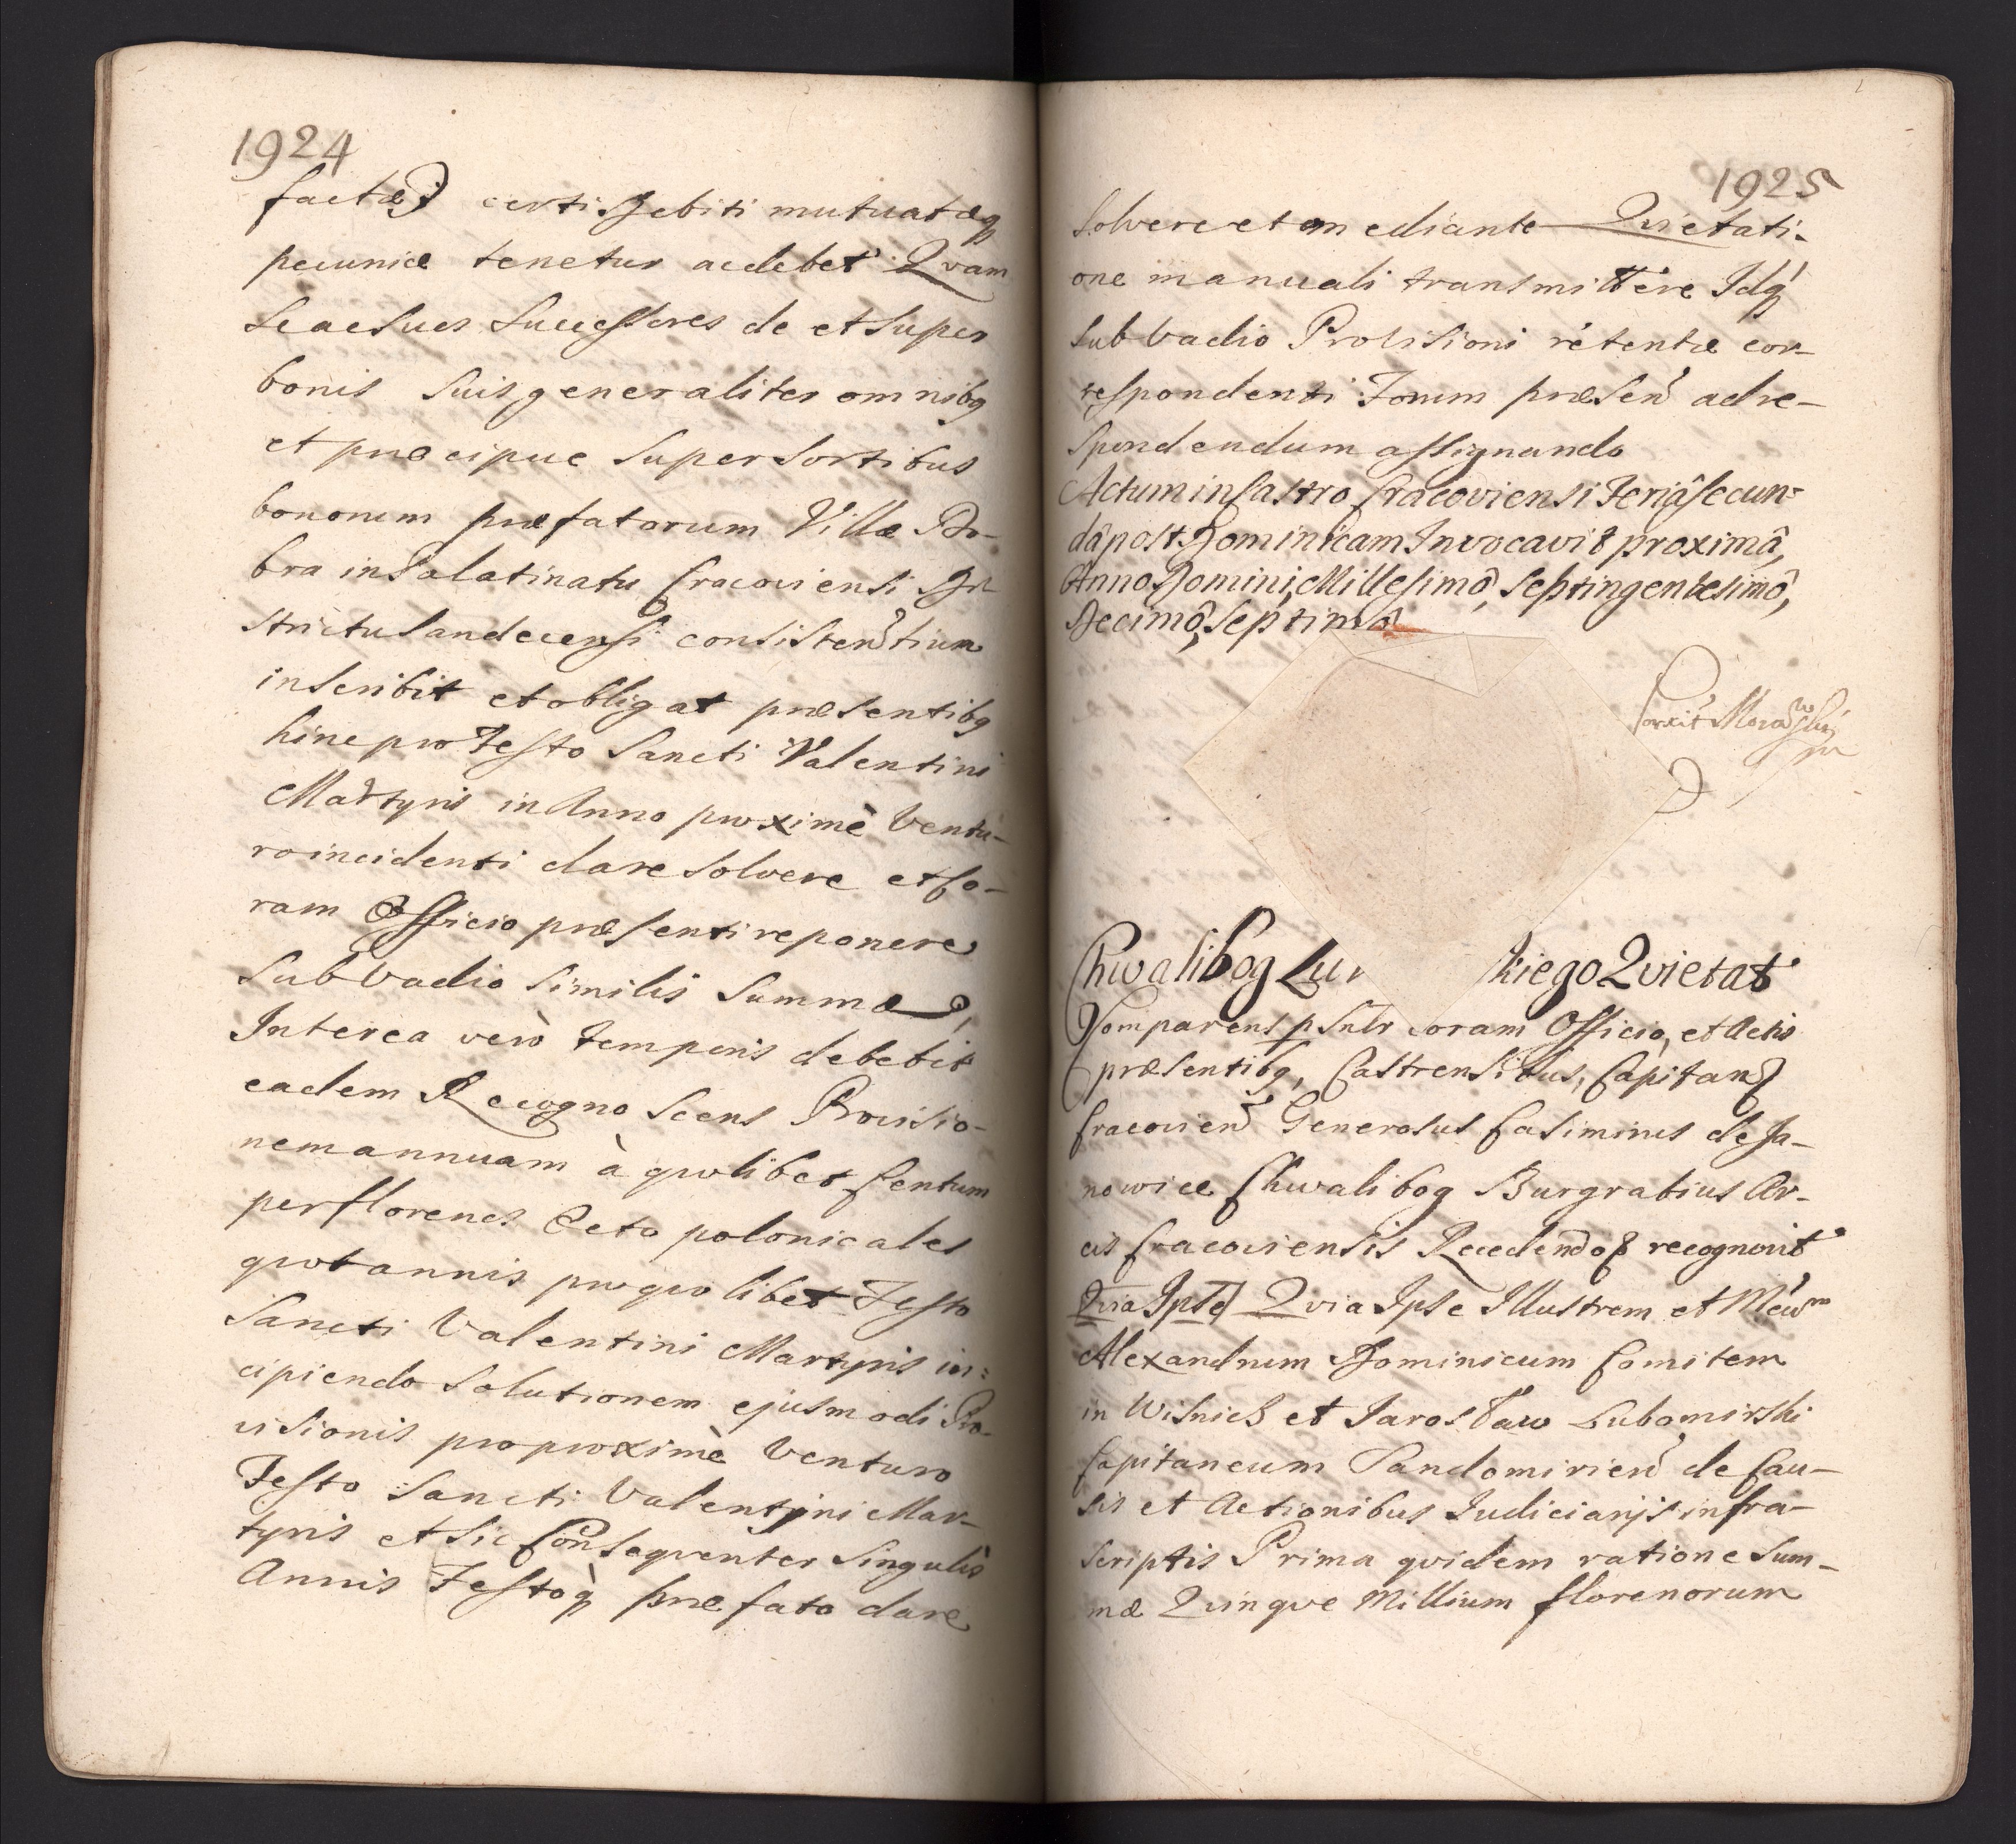 1924
factæ certi Debiti mutuatæq
pecuniæ tenetur ac debet Qvam
Se ac Suos Successores de et super
bonis Suis generaliter omnibq
et præcipue Super Sortibus
bonorum præfatorum Villæ Do-
bra in Palatinatu Cracoviensi Di-
strictu Sandecensi consistentium
inscribit et obligat præsentibq
hinc pro Festo Sancti Valentini
Martyris in Anno proximè Ventu-
ro incidenti dare Solvere et Co-
ram Officio præsenti reponere
Sub Vadio Similis Summæ,
Interea verò temporis debebit
eadem Recognoscens Provisio-
nem annuam à qvolibet Centum
per florenos Octo polonicales
qvotannis pro qvolibet Festo
Sancti Valentini Martyris in-
cipiendo Solutionem ejusmodi Pro-
visionis pro proximè Venturo
Festo Sancti Valentini Mar-
tyris et Sic Consequenter Singulis
Annis Festoq præfato dare
1925
Solvere et mediante Qvietati-
one manuali transmittere Idq
Sub Vadio Provisioni retentæ cor-
respondenti Forum præsen ad re-
spondendum assignando
Actum in Castro Cracoviensi Feriâ Secun-
dâ post Dominicam Invocavit proximâ,
Anno Domini Millesimô, Septingentesimô,
Decimô, Septimô
Chwalibog Lu kiego Qvietat
Comparens psnlr coram Officio, et Actis
præsentibq, Castrensibus, Capitan
Cracovien Generosus Casimirus de Ja-
nowice Chwalibog Burgrabius Ar-
cis Cracoviensis Recedendo recognovit
Qvia Ipse Qvia Ipse Illustrem et
Alexandrum Dominicum Comitem
in Wisnicz et Jarosław Lubomirski
Capitaneum Sandomirien de Cau-
sis et Actionibus Judiciarijs infra-
scriptis Prima qvidem ratione Sum-
mæ Qvinqve Millium florenorum